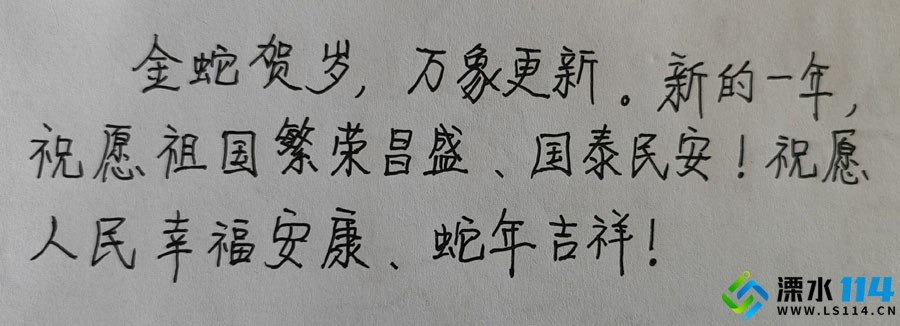 金蛇贺岁，万象更新。新的一年，
祝愿祖国繁荣昌盛、国泰民安！祝愿
人民幸福安康、蛇年吉祥！
溧水114
WWW.LS114.CN